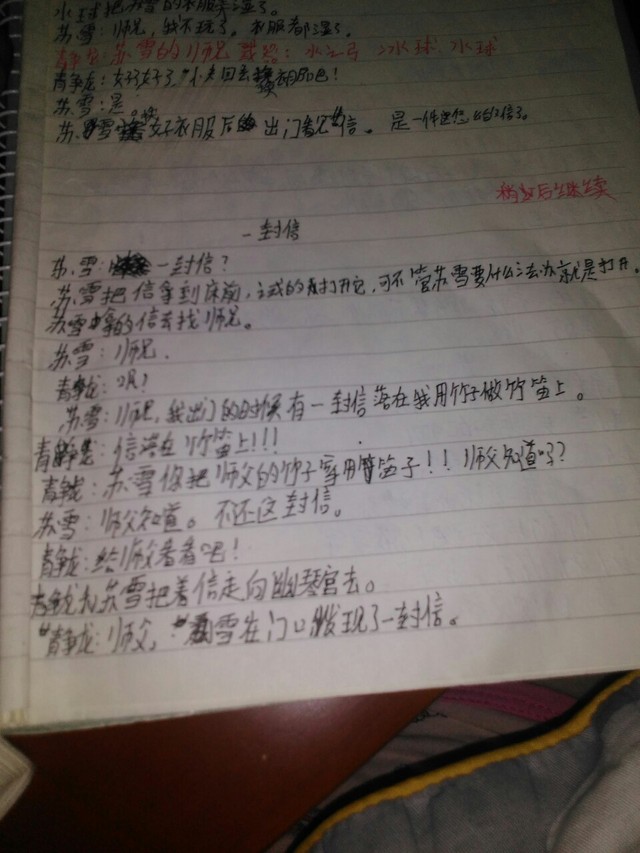 水球把苏雪的衣服弄湿了。
苏雪:师兄,我不玩了。衣服都湿了。
青争龙:苏雪的师兄 水之弓 冰球 水球
青争龙:好了好了。小 回去换衣服吧!
苏雪:是。
苏雪 好衣服后 出门看见"信。 是一件 信了。
稍后继续
一封信
苏雪: 一封信?
苏雪把信拿到床前, 的 打开它,可不管苏雪要什么去办就是打开。
苏雪拿的信去找师兄。
苏雪:师兄.
青争龙:呎?
苏雪:师兄,我出门的时候有一封信落在我用竹子做竹笛上。
青争龙:信落在竹笛上!!!
青争龙:苏雪你把师父的竹子 用 笛子!!师父知道吗?
苏雪:师父知道。不还这封信。
青争龙:给师父看看吧!
青争龙 苏雪把着信走向幽琴宫去。
"青争龙:师父,"苏雪在门口发现了一封信。